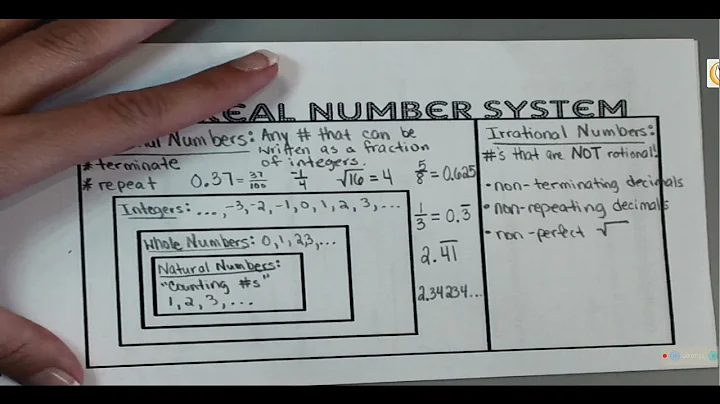 REAL NUMBER SYSTEM
Numbers: Any # that can be
written as a fraction
of integers.
* terminate
* repeat
0.37 = 37/100
-1/4
√16 = 4
5/8 = 0.625
1/3 = 0.3̅
2.4̅1̅
2.34234...
Integers: ..., -3, -2, -1, 0, 1, 2, 3, ...
Whole Numbers: 0, 1, 2, 3, ...
Natural Numbers:
"Counting #s"
1, 2, 3, ...
Irrational Numbers:
#'s that are NOT rational!
• non-terminating decimals
• non-repeating decimals
• non-perfect √